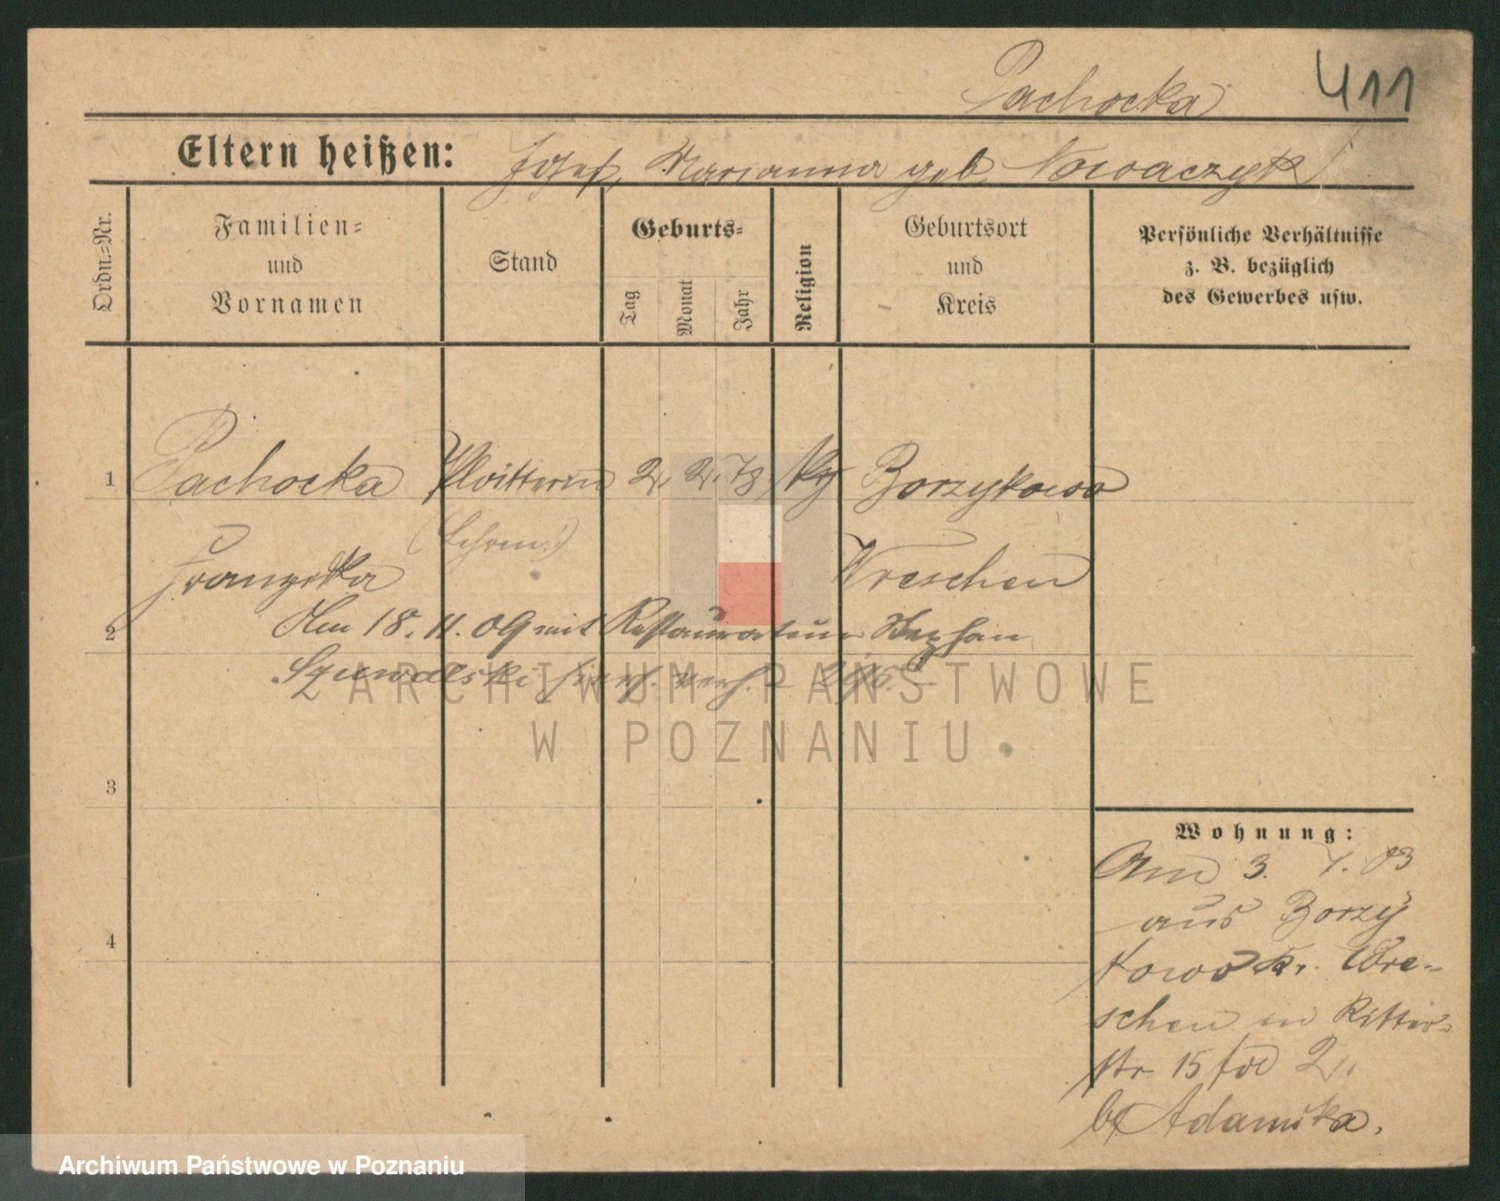 Pachocka
411
Eltern heißen: Josef, Marianna geb. Nowaczyk
Ordn.-Nr.
Familien-
und
Vornamen
Stand
Geburts-
Tag
Monat
Jahr
Religion
Geburtsort
und
Kreis
Persönliche Verhältnisse
z. B. bezüglich
des Gewerbes usw.
1 Pachocka Plätterin 2. 2. 78 Borzykowo
Franziska Wreschen
2 Am 18. 11. 09 mit Restaurateur Stephan
verh.
3
4
Wohnung:
Am 3. 7. 03
aus Borzy
kowo Kr. Wre-
schen in Ritter-
str 15
b/ Adamska.
ARCHIWUM PAŃSTWOWE
W POZNANIU
Archiwum Państwowe w Poznaniu